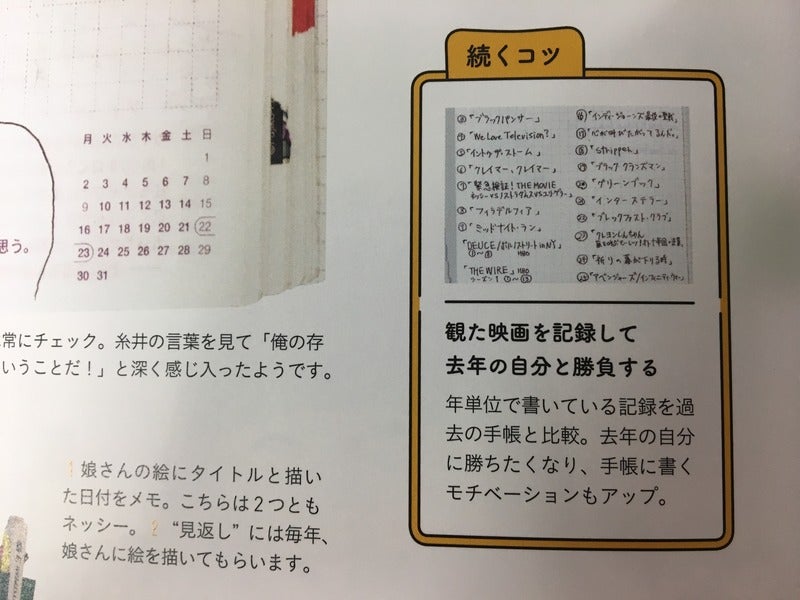 月 火 水 木 金 土 日
1
2 3 4 5 6 7 8
9 10 11 12 13 14 15
16 17 18 19 20 21 22
23 24 25 26 27 28 29
30 31
思う。
常にチェック。糸井の言葉を見て「俺の存
いうことだ！」と深く感じ入ったようです。
1 娘さんの絵にタイトルと描い
た日付をメモ。こちらは2つとも
ネッシー。2 “見返し”には毎年、
娘さんに絵を描いてもらいます。
続くコツ
「ブラックパンサー」
「We Love Television?」
「イントゥ・ザ・ストーム」
「クレイマー、クレイマー」
「緊急検証！THE MOVIE
ネッシーVSノストラダムスVSユリゲラー」
「フィラデルフィア」
「ミッドナイト・ラン」
「DEUCE/ポルノストリート in NY」
「THE WIRE」HBO
シーズン1 ①〜⑬
「インディ・ジョーンズ 最後の聖戦」
「心が叫びたがってるんだ。」
「ブラック・クランズマン」
「グリーンブック」
「インターステラー」
「ブレックファスト・クラブ」
「クレヨンしんちゃん
「祈りの幕が下りる時」
「アベンジャーズ/インフィニティ・ウォー」
観た映画を記録して
去年の自分と勝負する
年単位で書いている記録を過
去の手帳と比較。去年の自分
に勝ちたくなり、手帳に書く
モチベーションもアップ。